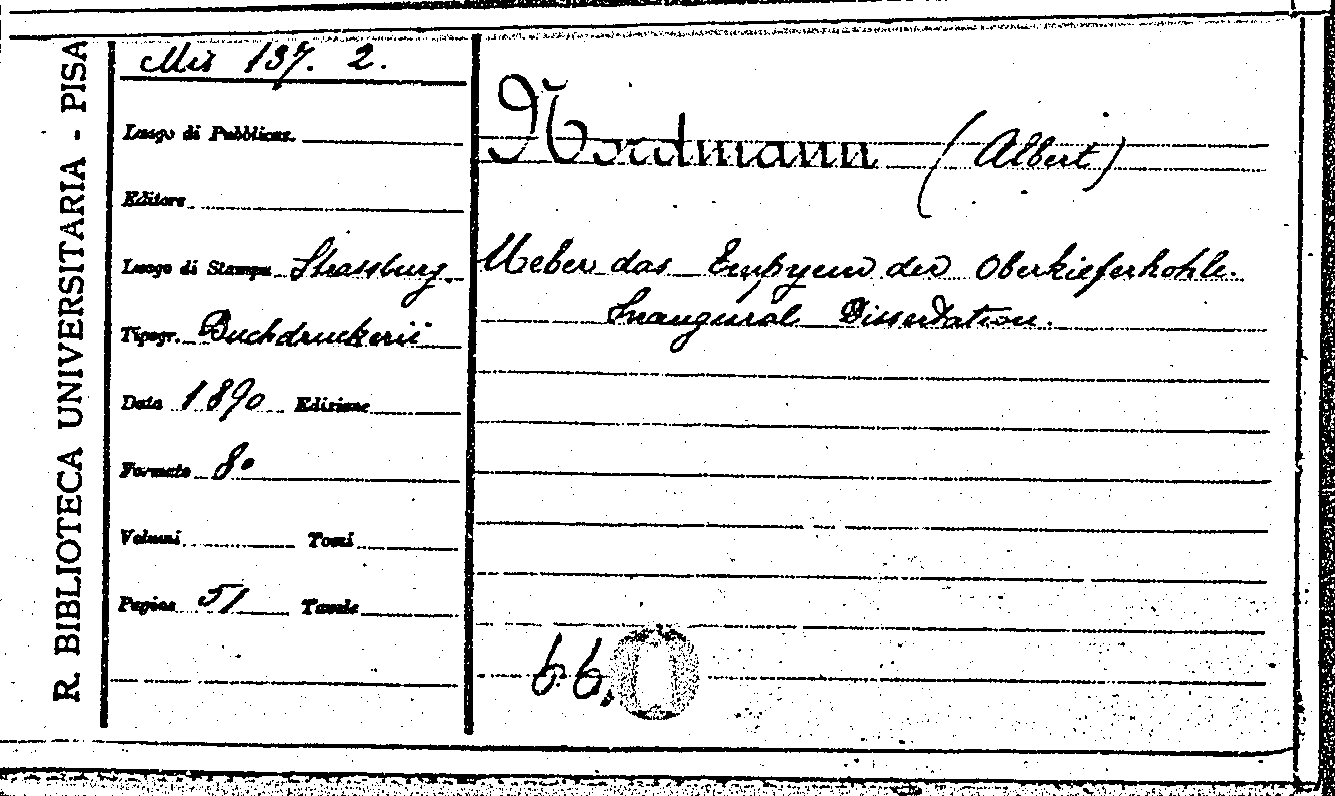 R. BIBLIOTECA UNIVERSITARIA - PISA
Mis 137. 2.
Luogo di Pubblicaz.
Editore
Luogo di Stampa Strassburg.
Tipogr. Buchdruckerii
Data 1890 Edizione
Formato 8º
Volumi Tomi
Pagine 51 Tavole
Nordmann (Albert)
Ueber das Empyem der Oberkieferhohle.
Inaugural Dissertation.
66.